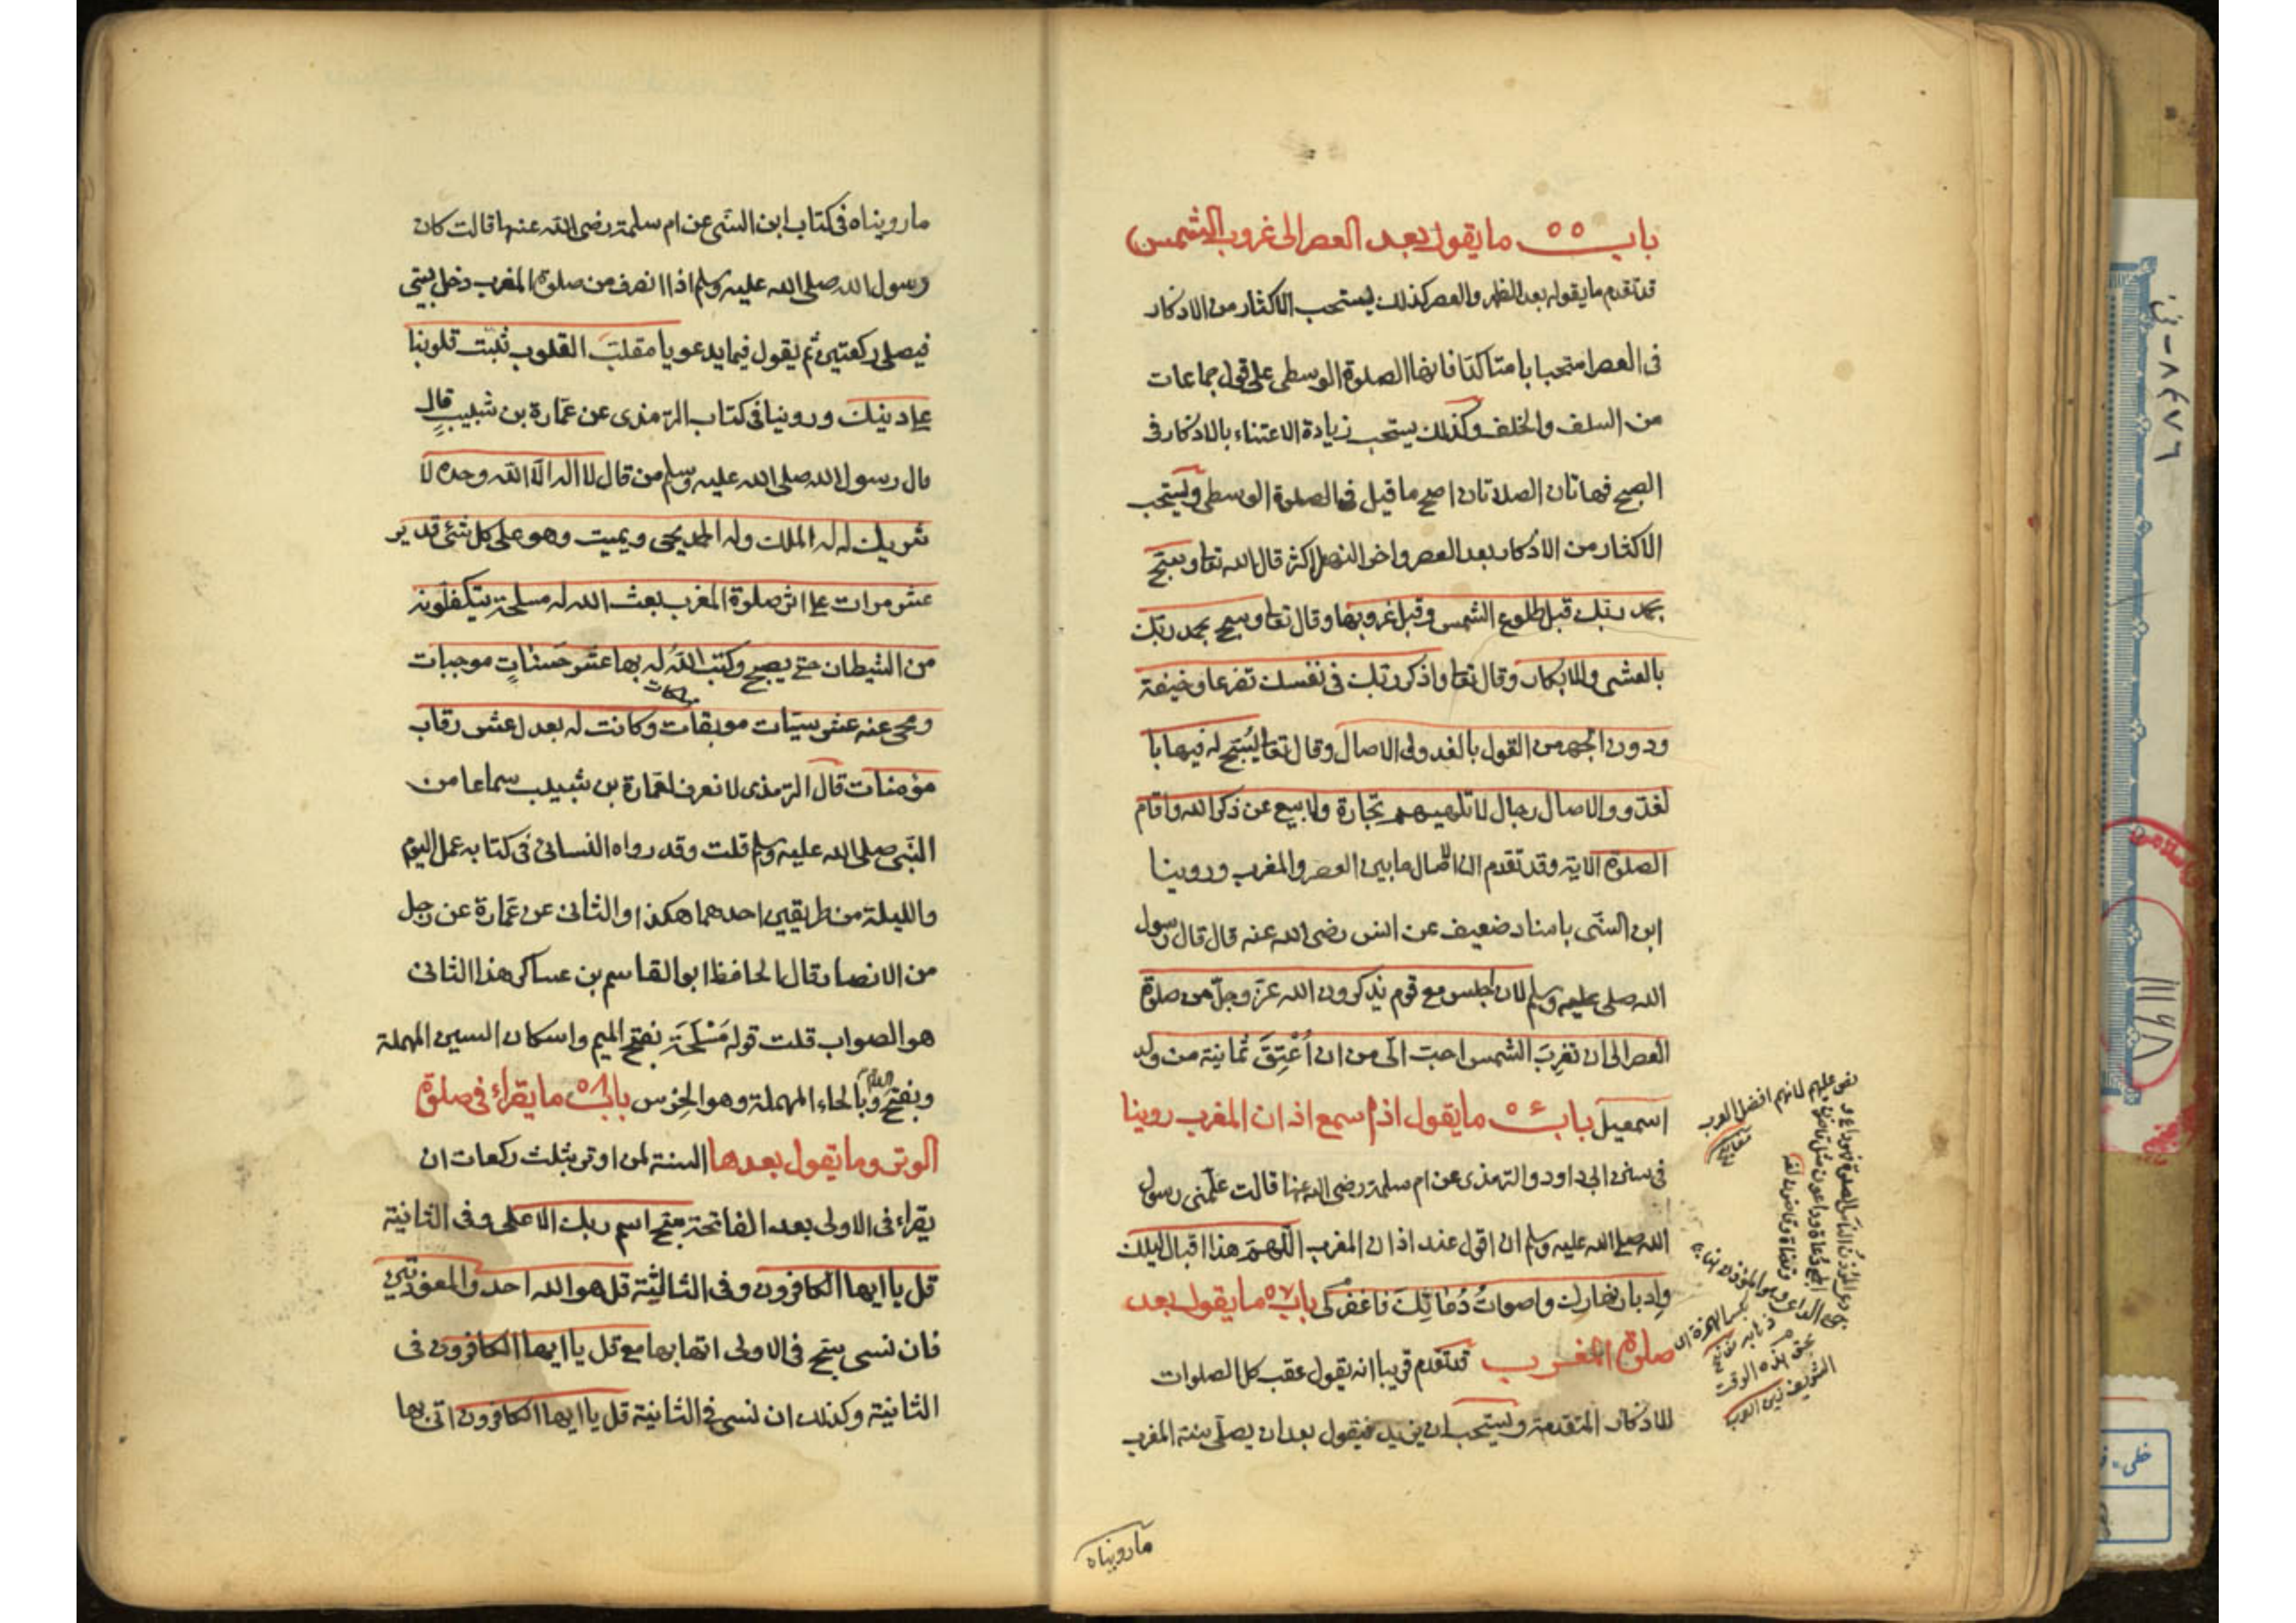 باب ٥٥ ما يقول بعد العصر الى غروب الشمس
قد تقدم ما يقوله بعد الظهر والعصر كذلك يستحب الاكثار من الاذكار
فى العصر استحبابا متاكدا فانها الصلوة الوسطى على قول جماعات
من السلف والخلف وكذلك يستحب زيادة الاعتناء بالاذكار فى
الصبح فهاتان الصلاتان اصح ما قيل فى الصلوة الوسطى ويستحب
الاكثار من الاذكار بعد العصر واخر النهار اكثر قال الله تعا وسبح
بحمد ربك قبل طلوع الشمس وقبل غروبها وقال تعا وسبح بحمد ربك
بالعشى والابكار وقال تعا واذكر ربك فى نفسك تضرعا وخيفة
ودون الجهر من القول بالغدو والاصال وقال تعا يسبح له فيها با
لغدو والاصال رجال لا تلهيهم تجارة ولا بيع عن ذكر الله واقام
الصلوة الاية وقد تقدم ان الاصال ما بين العصر والمغرب وروينا
ابن السنى باسناد ضعيف عن انس رضى الله عنه قال قال رسول
الله صلى عليه وسلم لان اجلس مع قوم يذكرون الله عز وجل من صلوة
العصر الى ان تغرب الشمس احب الى من ان أُعْتِقَ ثمانية من ولد
اسمعيل باب ٥٦ ما يقول اذا سمع اذان المغرب روينا
فى سنن ابى داود والترمذى عن ام سلمة رضى الله عنها قالت علمنى رسول
الله صلى الله عليه وسلم ان اقول عند اذان المغرب اللهم هذا اقبال ليلك
وادبار نهارك واصوات دُعَاتِكَ فاغفر لى باب ٥٧ ما يقول بعد
صلوة المغرب قد تقدم قريبا انه يقول عقب كل الصلوات
الاذكار المتقدمة ويستحب ان يزيد فيقول بعد ان يصلى سنة المغرب
نص عليهم لانهم افضل العرب
ما رويناه
ما رويناه فى كتاب ابن السنى عن ام سلمة رضى الله عنها قالت كان
رسول الله صلى الله عليه وسلم اذا انصرف من صلوة المغرب دخل بيتى
فيصلى ركعتين ثم يقول فيما يدعو يا مقلب القلوب ثبت قلوبنا
على دينك وروينا فى كتاب الترمذى عن عمارة بن شبيب قال
قال رسول الله صلى الله عليه وسلم من قال لا اله الا الله وحده لا
شريك له له الملك وله الحمد يحيى ويميت وهو على كل شئ قدير
عشر مرات على اثر صلوة المغرب بعث الله له مسلحة يتكفلونه
من الشيطان حتى يصبح وكتب الله له بها عشر حسنات موجبات
ومحى عنه عشر سيئات موبقات وكانت له بعدل عشر رقاب
مؤمنات قال الترمذى لا نعرف لعمارة بن شبيب سماعا من
النبى صلى الله عليه وسلم قلت وقد رواه النسائى فى كتابه عمل اليوم
والليلة من طريقين احدهما هكذا والثانى عن عمارة عن رجل
من الانصار قال الحافظ ابو القاسم بن عساكر هذا الثانى
هو الصواب قلت قوله مَسْلَحَة بفتح الميم واسكان السين المهملة
وبفتح اللام وبالحاء المهملة وهو الحرس باب ٥٨ ما يقراء فى صلوة
الوتر وما يقول بعدها السنة لمن اوتر بثلث ركعات ان
يقراء فى الاولى بعد الفاتحة سبح اسم ربك الاعلى وفى الثانية
قل يا ايها الكافرون وفى الثالثة قل هو الله احد والمعوذتين
فان نسى سبح فى الاولى اتى بها مع قل يا ايها الكافرون فى
الثانية وكذلك ان نسى فى الثانية قل يا ايها الكافرون اتى بها